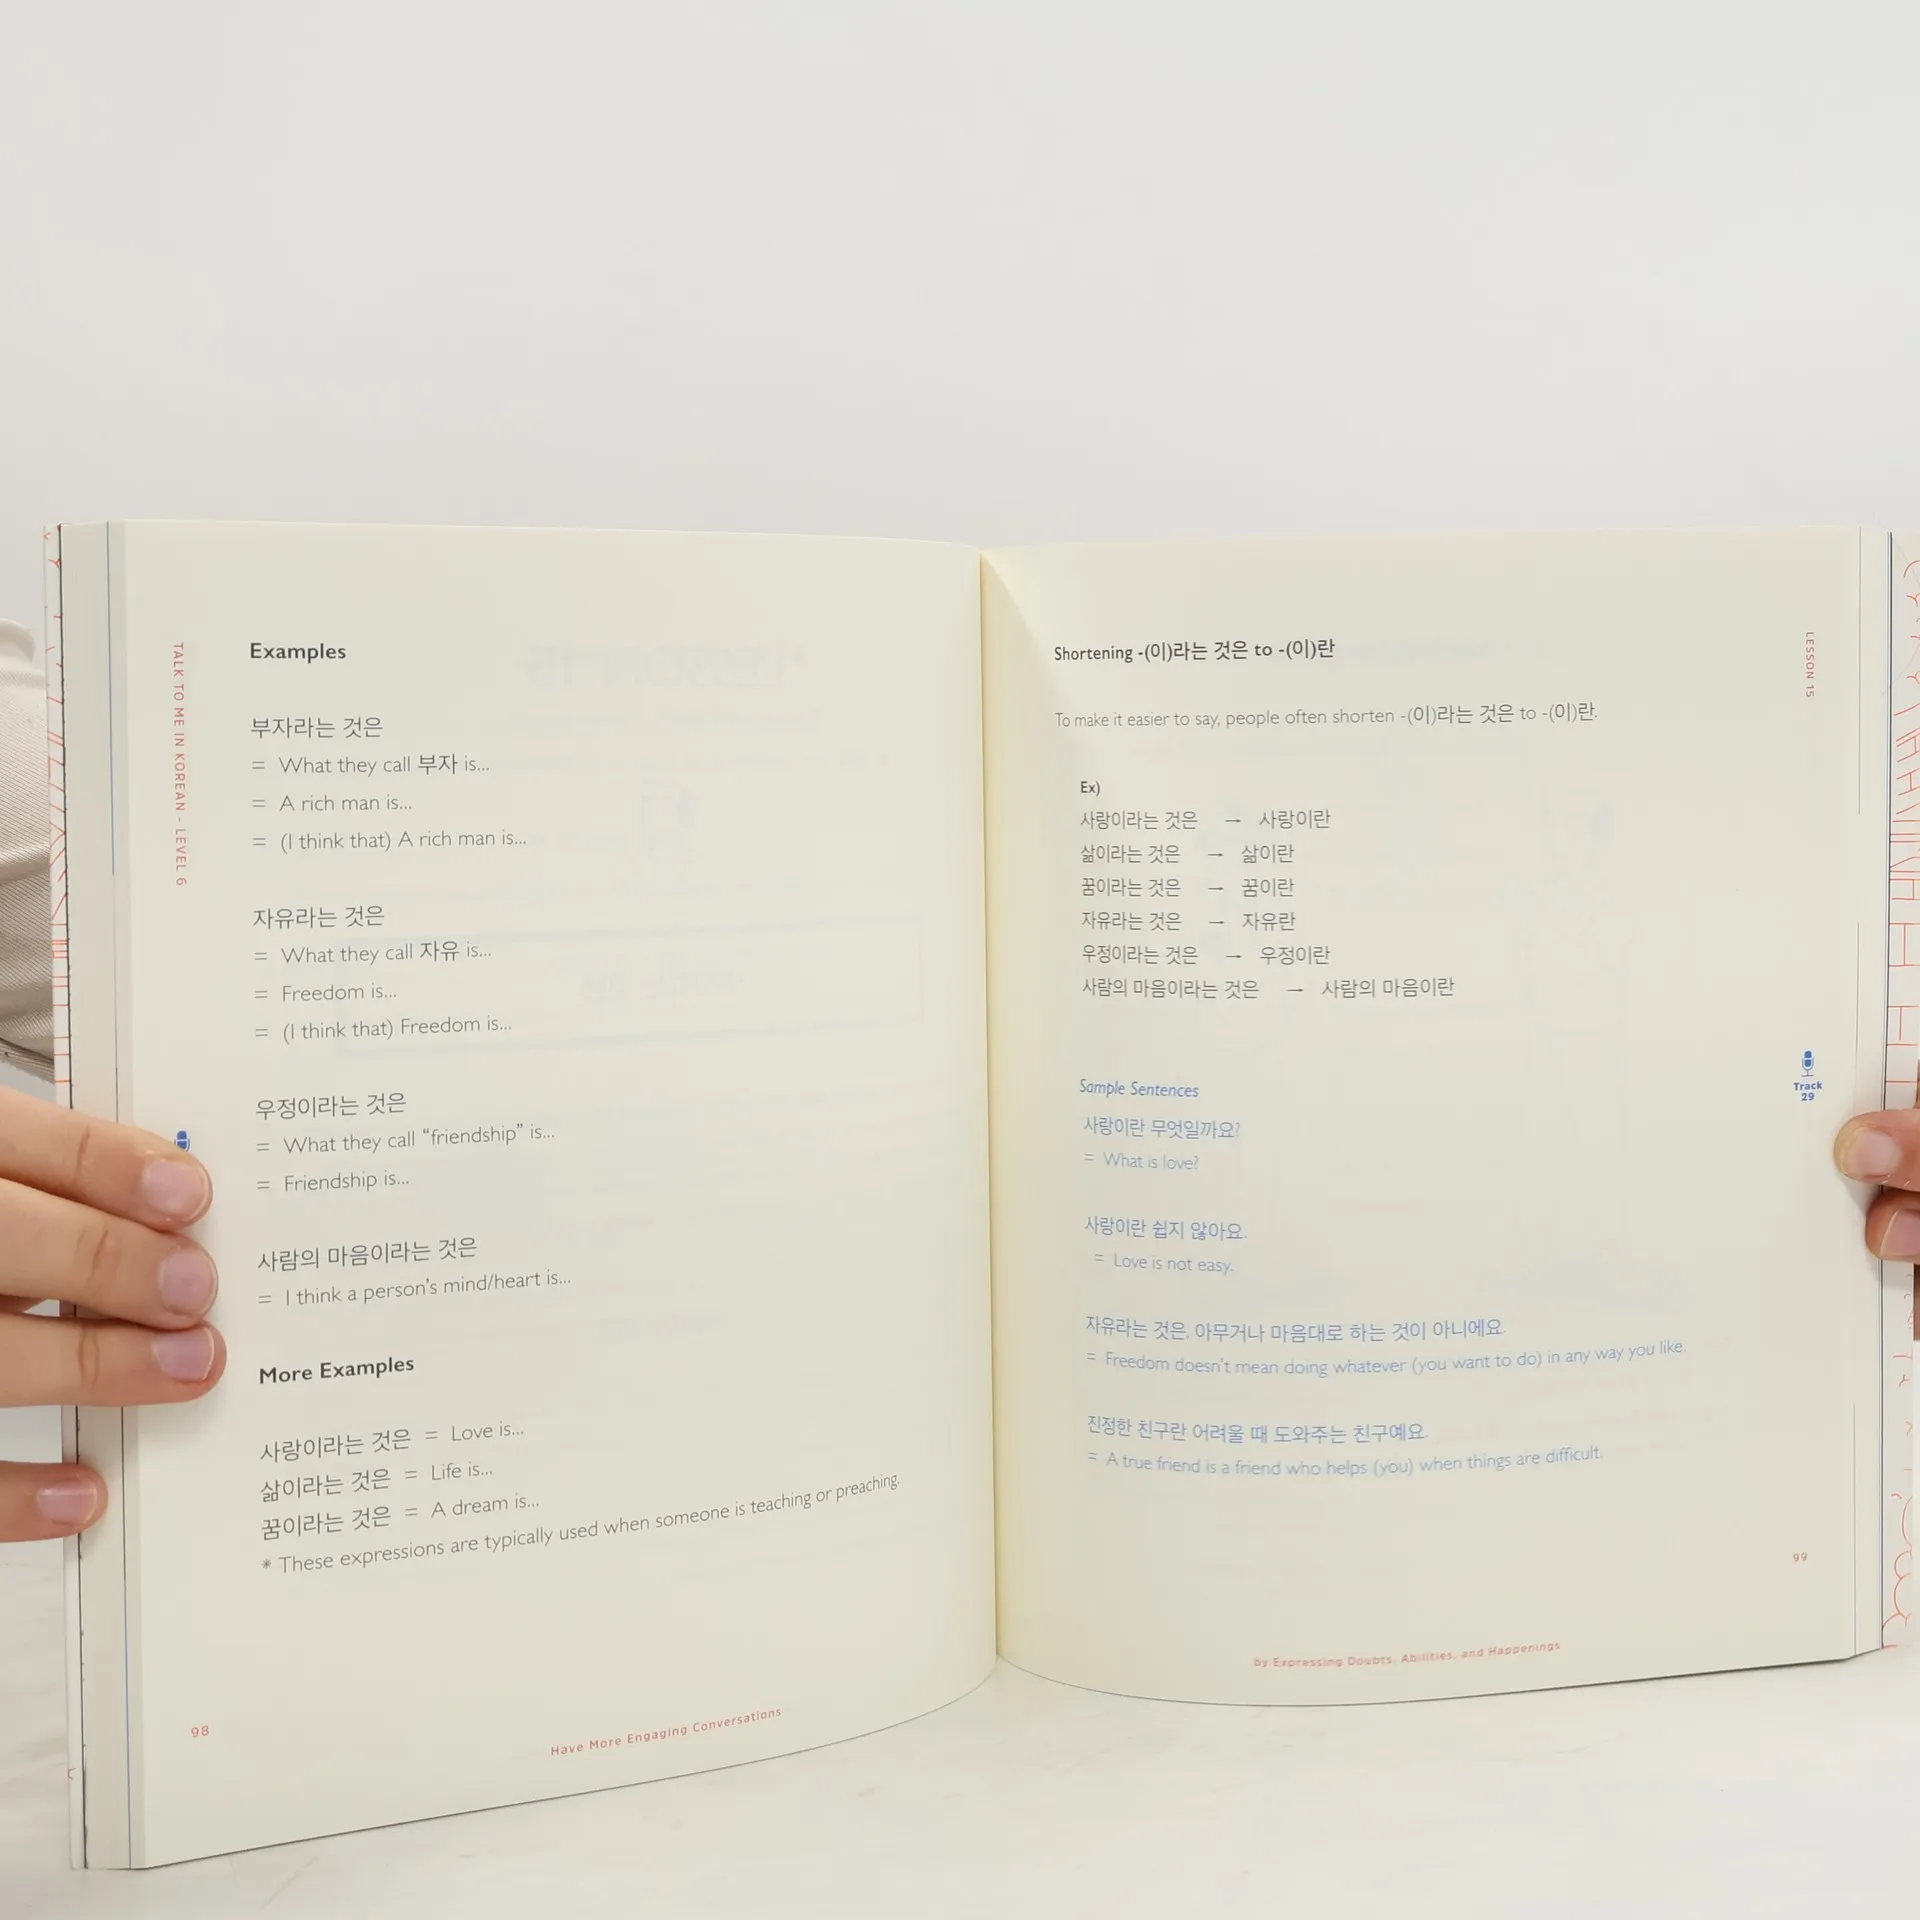 TALK TO ME IN KOREAN - LEVEL 6
Examples
부자라는 것은
= What they call 부자 is...
= A rich man is...
= (I think that) A rich man is...
자유라는 것은
= What they call 자유 is...
= Freedom is...
= (I think that) Freedom is...
우정이라는 것은
= What they call “friendship” is...
= Friendship is...
사람의 마음이라는 것은
= I think a person’s mind/heart is...
More Examples
사랑이라는 것은 = Love is...
삶이라는 것은 = Life is...
꿈이라는 것은 = A dream is...
* These expressions are typically used when someone is teaching or preaching.
98
Have More Engaging Conversations
LESSON 15
Shortening -(이)라는 것은 to -(이)란
To make it easier to say, people often shorten -(이)라는 것은 to -(이)란.
Ex)
사랑이라는 것은 → 사랑이란
삶이라는 것은 → 삶이란
꿈이라는 것은 → 꿈이란
자유라는 것은 → 자유란
우정이라는 것은 → 우정이란
사람의 마음이라는 것은 → 사람의 마음이란
Track
29
Sample Sentences
사랑이란 무엇일까요?
= What is love?
사랑이란 쉽지 않아요.
= Love is not easy.
자유라는 것은, 아무거나 마음대로 하는 것이 아니에요.
= Freedom doesn’t mean doing whatever (you want to do) in any way you like.
진정한 친구란 어려울 때 도와주는 친구예요.
= A true friend is a friend who helps (you) when things are difficult.
99
by Expressing Doubts, Abilities, and Happenings